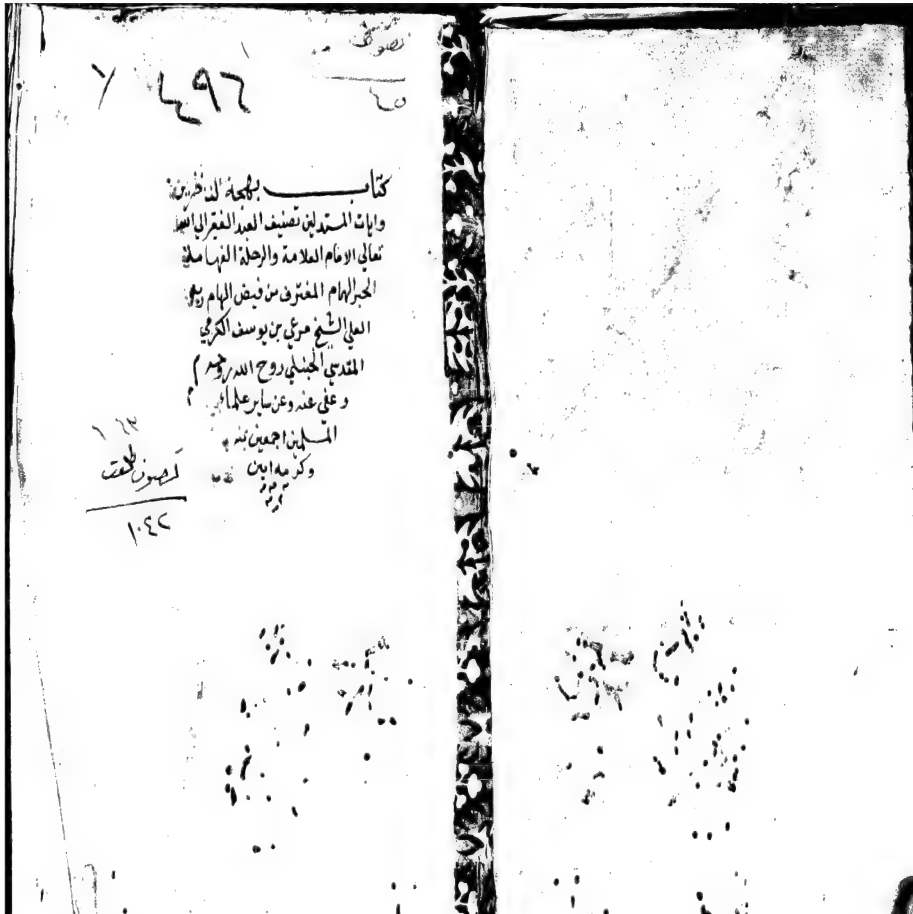 تصوف
٤٥
٧ ٤٩٦
كتاب بهجة الناظرين
وايات المستدلين تصنيف العبد الفقير الي الله
تعالي الامام العلامة والرحلة الفهامة
الحبر الهمام المغترف من فيض الهام ربه
العلي الشيخ مرعي بن يوسف الكرمي
المقدسي الحنبلي روح الله روحه
وعفي عنه وعن ساير علماء
المسلمين اجمعين بمنه
وكرمه امين
تصوف طلعت
١٠٤٢